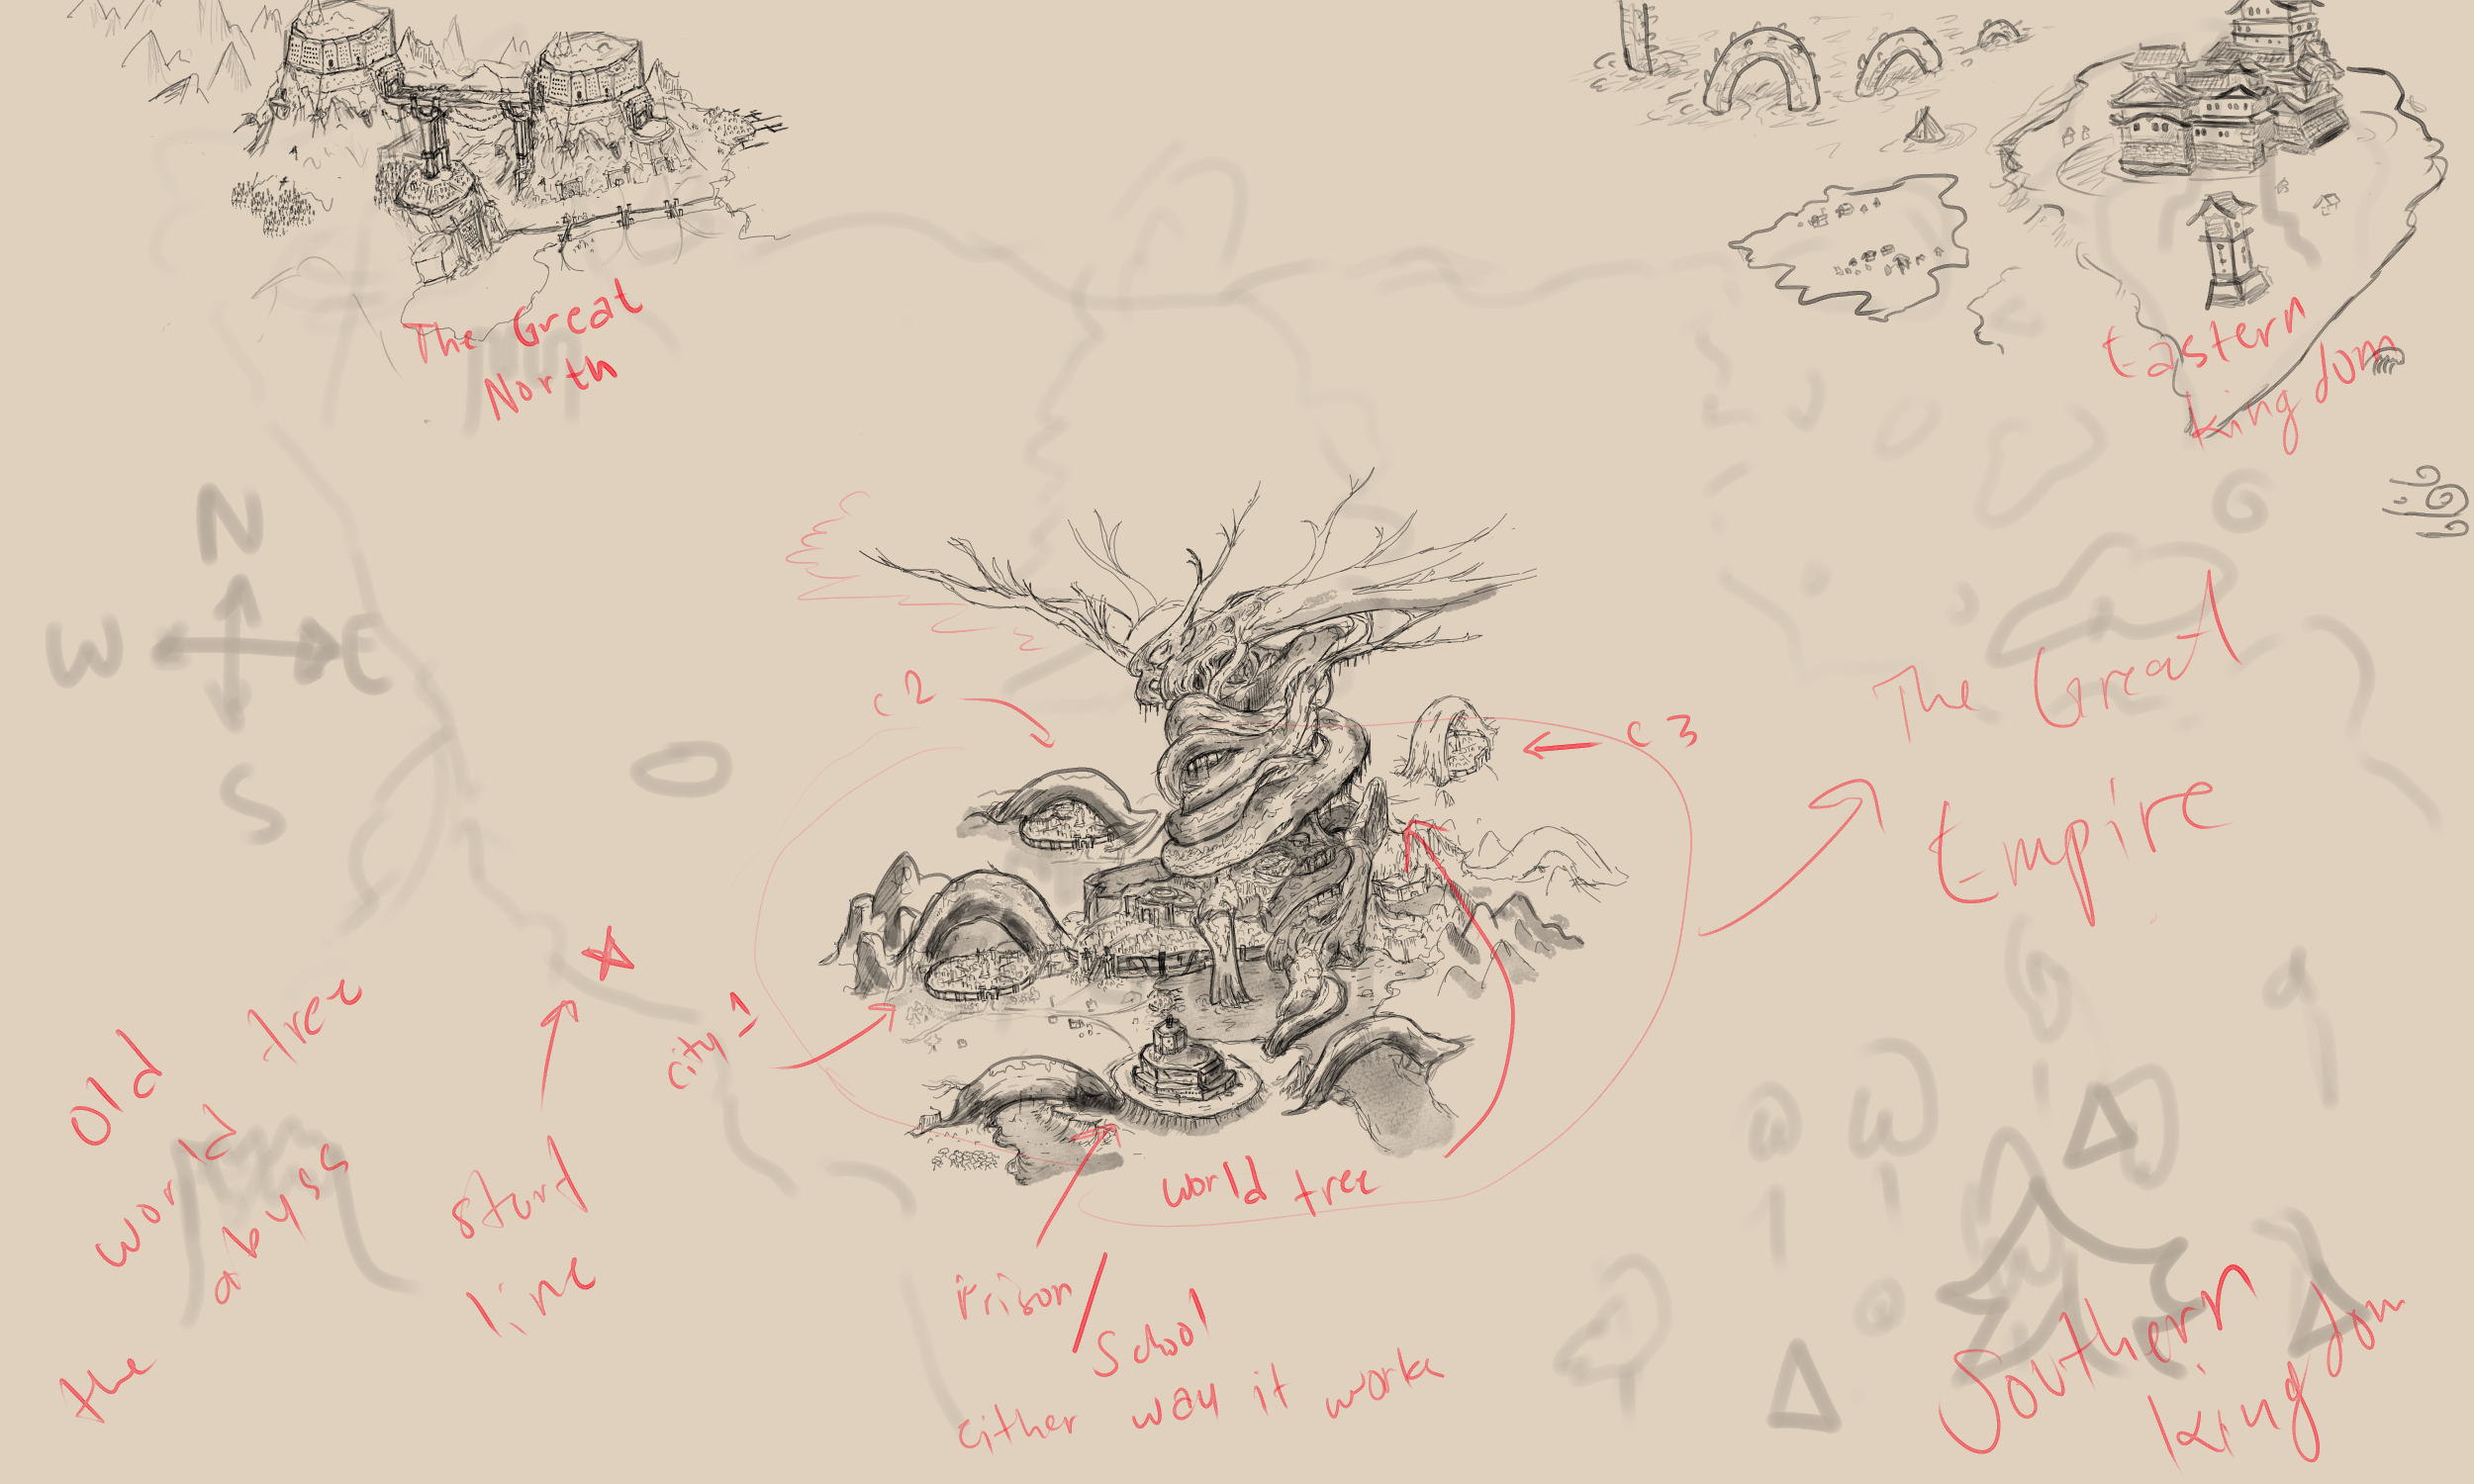 The Great
North
Eastern
kingdom
N
W
E
S
c2
c3
The Great
Empire
Old
world tree
the abyss
start
line
City 1
world tree
Prison/
School
either way it works
Southern
kingdom